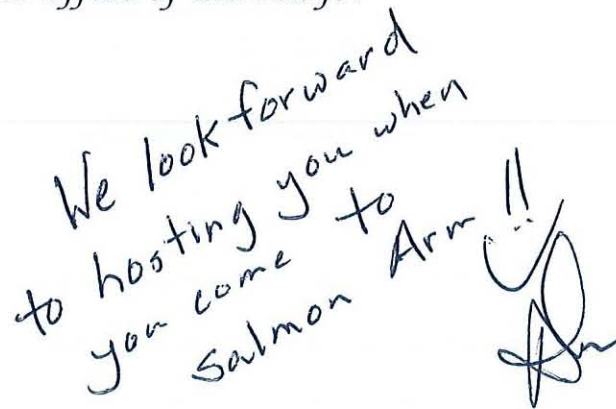 We look forward
to hosting you when
you come to
Salmon Arm!!